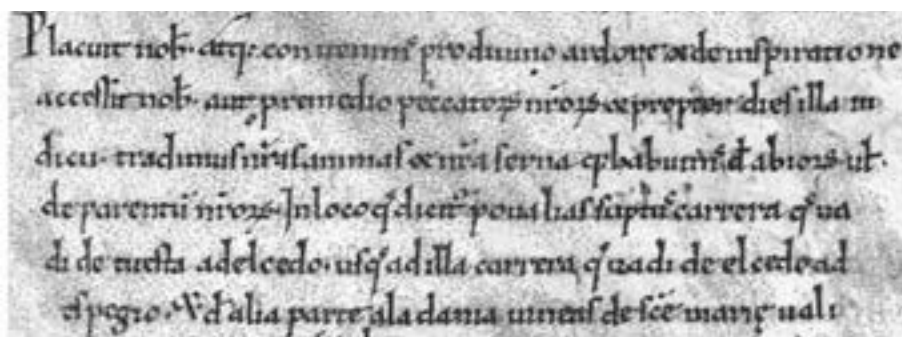 Placuit nob. atq; conuenim pro diuino ardore & de inspiratione
accessit nob. aut premedio peccatorꝝ nr̄orꝝ & propter dies illa iu
dicii. tradimus nr̄as animas & nr̄a serna ꝙ habuim de abiorꝝ ut.
de parentu nr̄orꝝ. In loco q̄ dicit poualias suptus carrera q̄ ua
di de cuesta adelcedo. usq̄ ad illa carrera q̄ uadi de elcedo ad
espegio. & d alia parte ala dama de sce marie uali